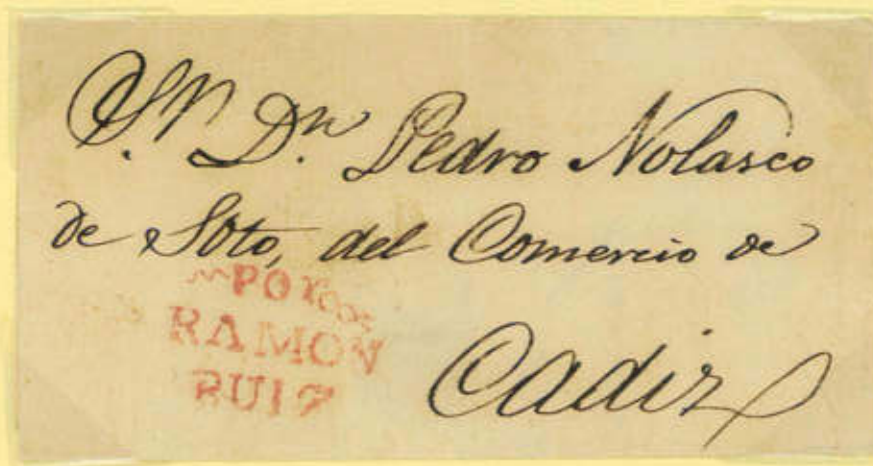 S.r D.n Pedro Nolasco
de Soto, del Comercio de
Cadiz
POR
RAMON
RUIZ